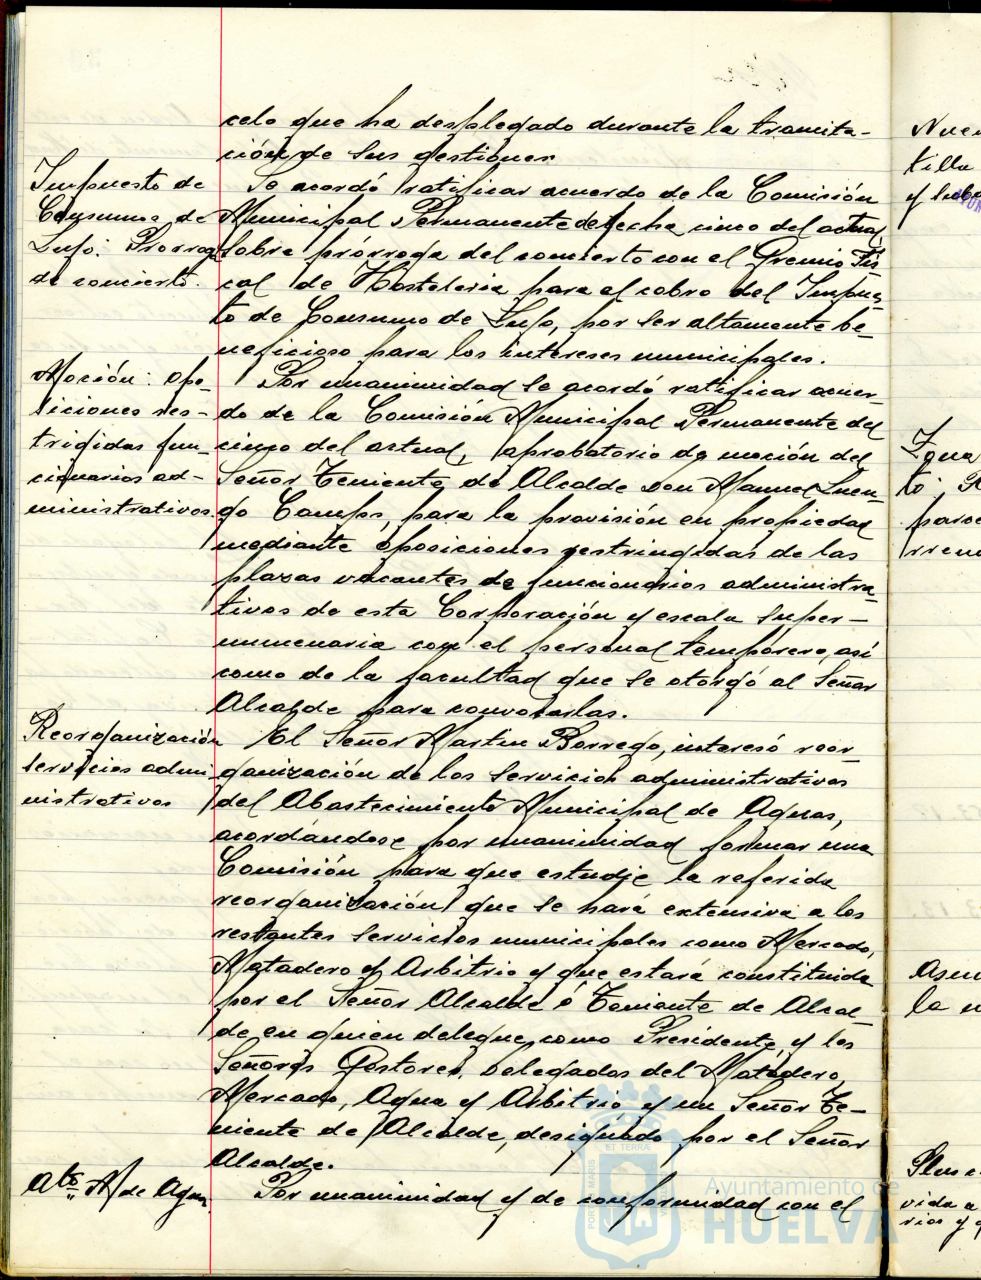 celo que ha desplegado durante la tramita-
ción de sus gestiones.
Impuesto de
Consumos de
Lujo: Prorroga
de concierto.
Se acordó ratificar acuerdo de la Comisión
Municipal Permanente de fecha cinco del actual,
sobre prórroga del concierto con el Gremio Fis-
cal de Hosteleria para el cobro del Impues-
to de Consumo de Lujo, por ser altamente be-
neficioso para los intereses municipales.
Moción: Opo-
siciones res-
trigidas fun-
cionarios ad-
ministrativos.
Por unanimidad se acordó ratificar acuer-
do de la Comisión Municipal Permanente del
cinco del actual, aprobatorio de moción del
Señor Teniente de Alcalde Don Manuel Luen-
go Camps, para la provisión en propiedad
mediante oposiciones restringidas de las
plazas vacantes de funcionarios administra-
tivos de esta Corporación y escala super-
numeraria con el personal temporero, así
como de la facultad que se otorgó al Señor
Alcalde para convocarlas.
Reorganización
servicios admi-
nistrativos
El Señor Martin Borrego, interesó reor-
ganización de los servicios administrativos
del Abastecimiento Municipal de Aguas,
acordándose por unanimidad formar una
Comisión para que estudie la referida
reorganización que se hará extensiva a los
restantes servicios municipales como Mercado,
Matadero y Arbitrio y que estará constituida
por el Señor Alcalde ó Teniente de Alcal-
de en quien delegue, como Presidente, y los
Señores Gestores, Delegados del Matadero,
Mercado, Agua y Arbitrio y un Señor Te-
niente de Alcalde, designado por el Señor
Alcalde.
Ato. M. de Aguas
Por unanimidad y de conformidad con el
Ayuntamiento de
HUELVA
tilla
y
to:
la
vida a